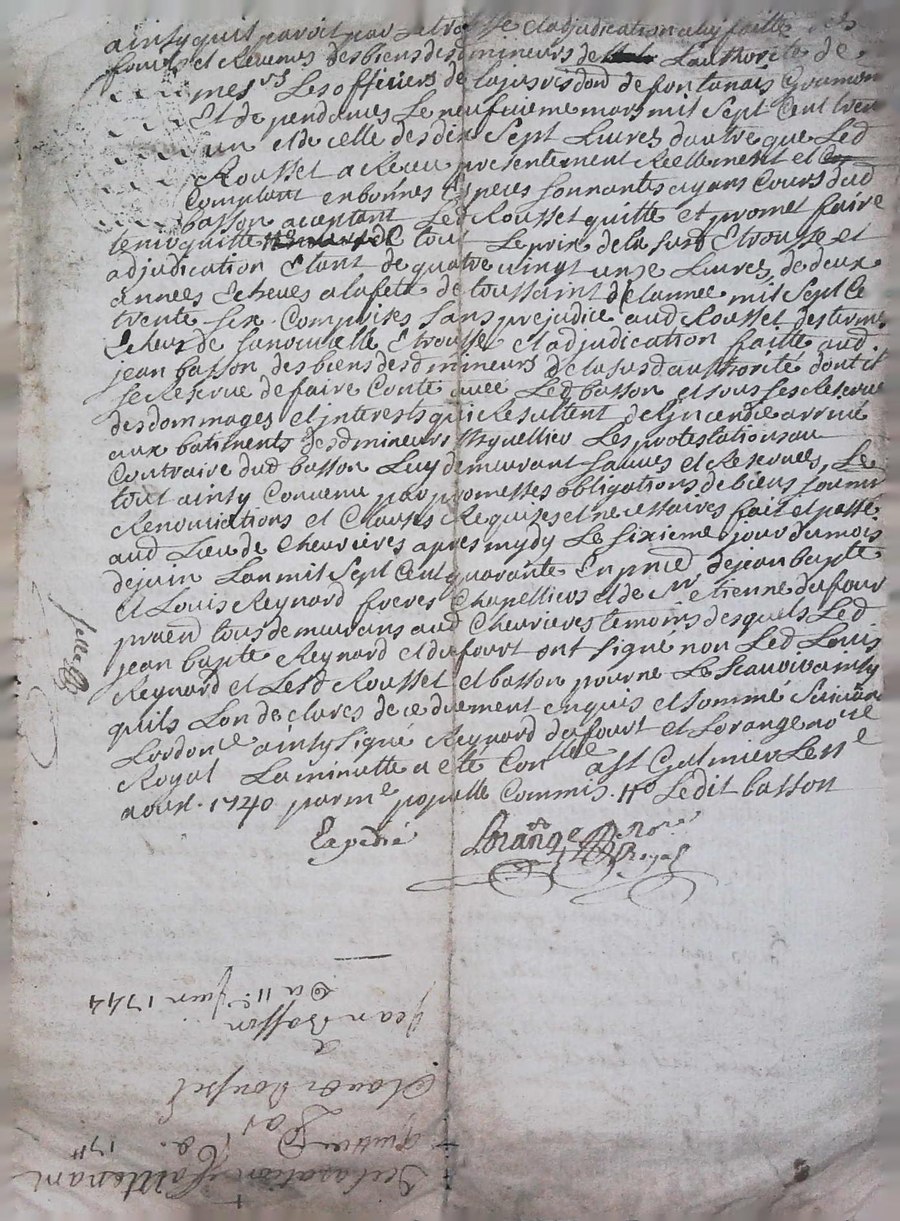 ainsy quil paroit par Etrousse et adjudication a luy faitte des
fruits et Revenus des biens desd mineurs de Lauthorité de
mesrs Les officiers de la jurisdon de fontanais Gramon
Et de pendances Le neufuieme mars mil Sept Cent tren
un et de celle des dix Sept Livres dautre que Led
Rousset a Receu presentement Reellement et
Comptant en bonnes Especes Sonnantes ayans Cours dud
basson aceptant Led Rousset quitte et promet faire
tenir quitte de tout Le prix de la susd Etrousse et
adjudication Etant de quatre vingt unze Livres de deux
années Echeues a la fete de toussaint de lannee mil Sept Ce
trente six Comprises Sans prejudice aud Rousset des termes
Echeus de sa nouvelle Etrousse et adjudication faitte aud
jean basson des biens desd mineurs de la susd authorité dont il
se Reserve de faire Conte avec Led basson et sous ses Reserves
des dommages et interests qui Resultent de Lincendie arrivé
aux batiments desd mineurs Les protestations au
Contraire dud basson Luy demeurant Sauves et Reservees Le
tout ainsy Convenu par promesses obligations de biens soumis
Renonciations et Clauses Requises et necessaires fait et passé
aud Lieu de Chevrieres apres mydy Le sixieme jour du mois
de juin Lan mil Sept Cent quarante En pnce de jean bapte
et Louis Reynard freres Chapelliers et de Mr etienne dufour
praen tous demeurans aud Chevrieres temoins desquels Led
jean bapte Reynard et dufourt ont signé non Led Louis
Reynard et Lesd Rousset et basson pour ne Le Scavoir ainsy
quils Lon declares de ce duement enquis et sommé Suivan
Lordonce ainsy signé Reynard dufourt et Lorange nore
Royal La minutte a eté Conllée a St Galmier Le 11e
aoust 1740 par me populle Commis Ho Ledit basson
Expedié
Lorange Nore
Royal
Declaration Contenant
quittance
Par
Claude Rousset
a
Jean Basson
Du 11e Juin 1744